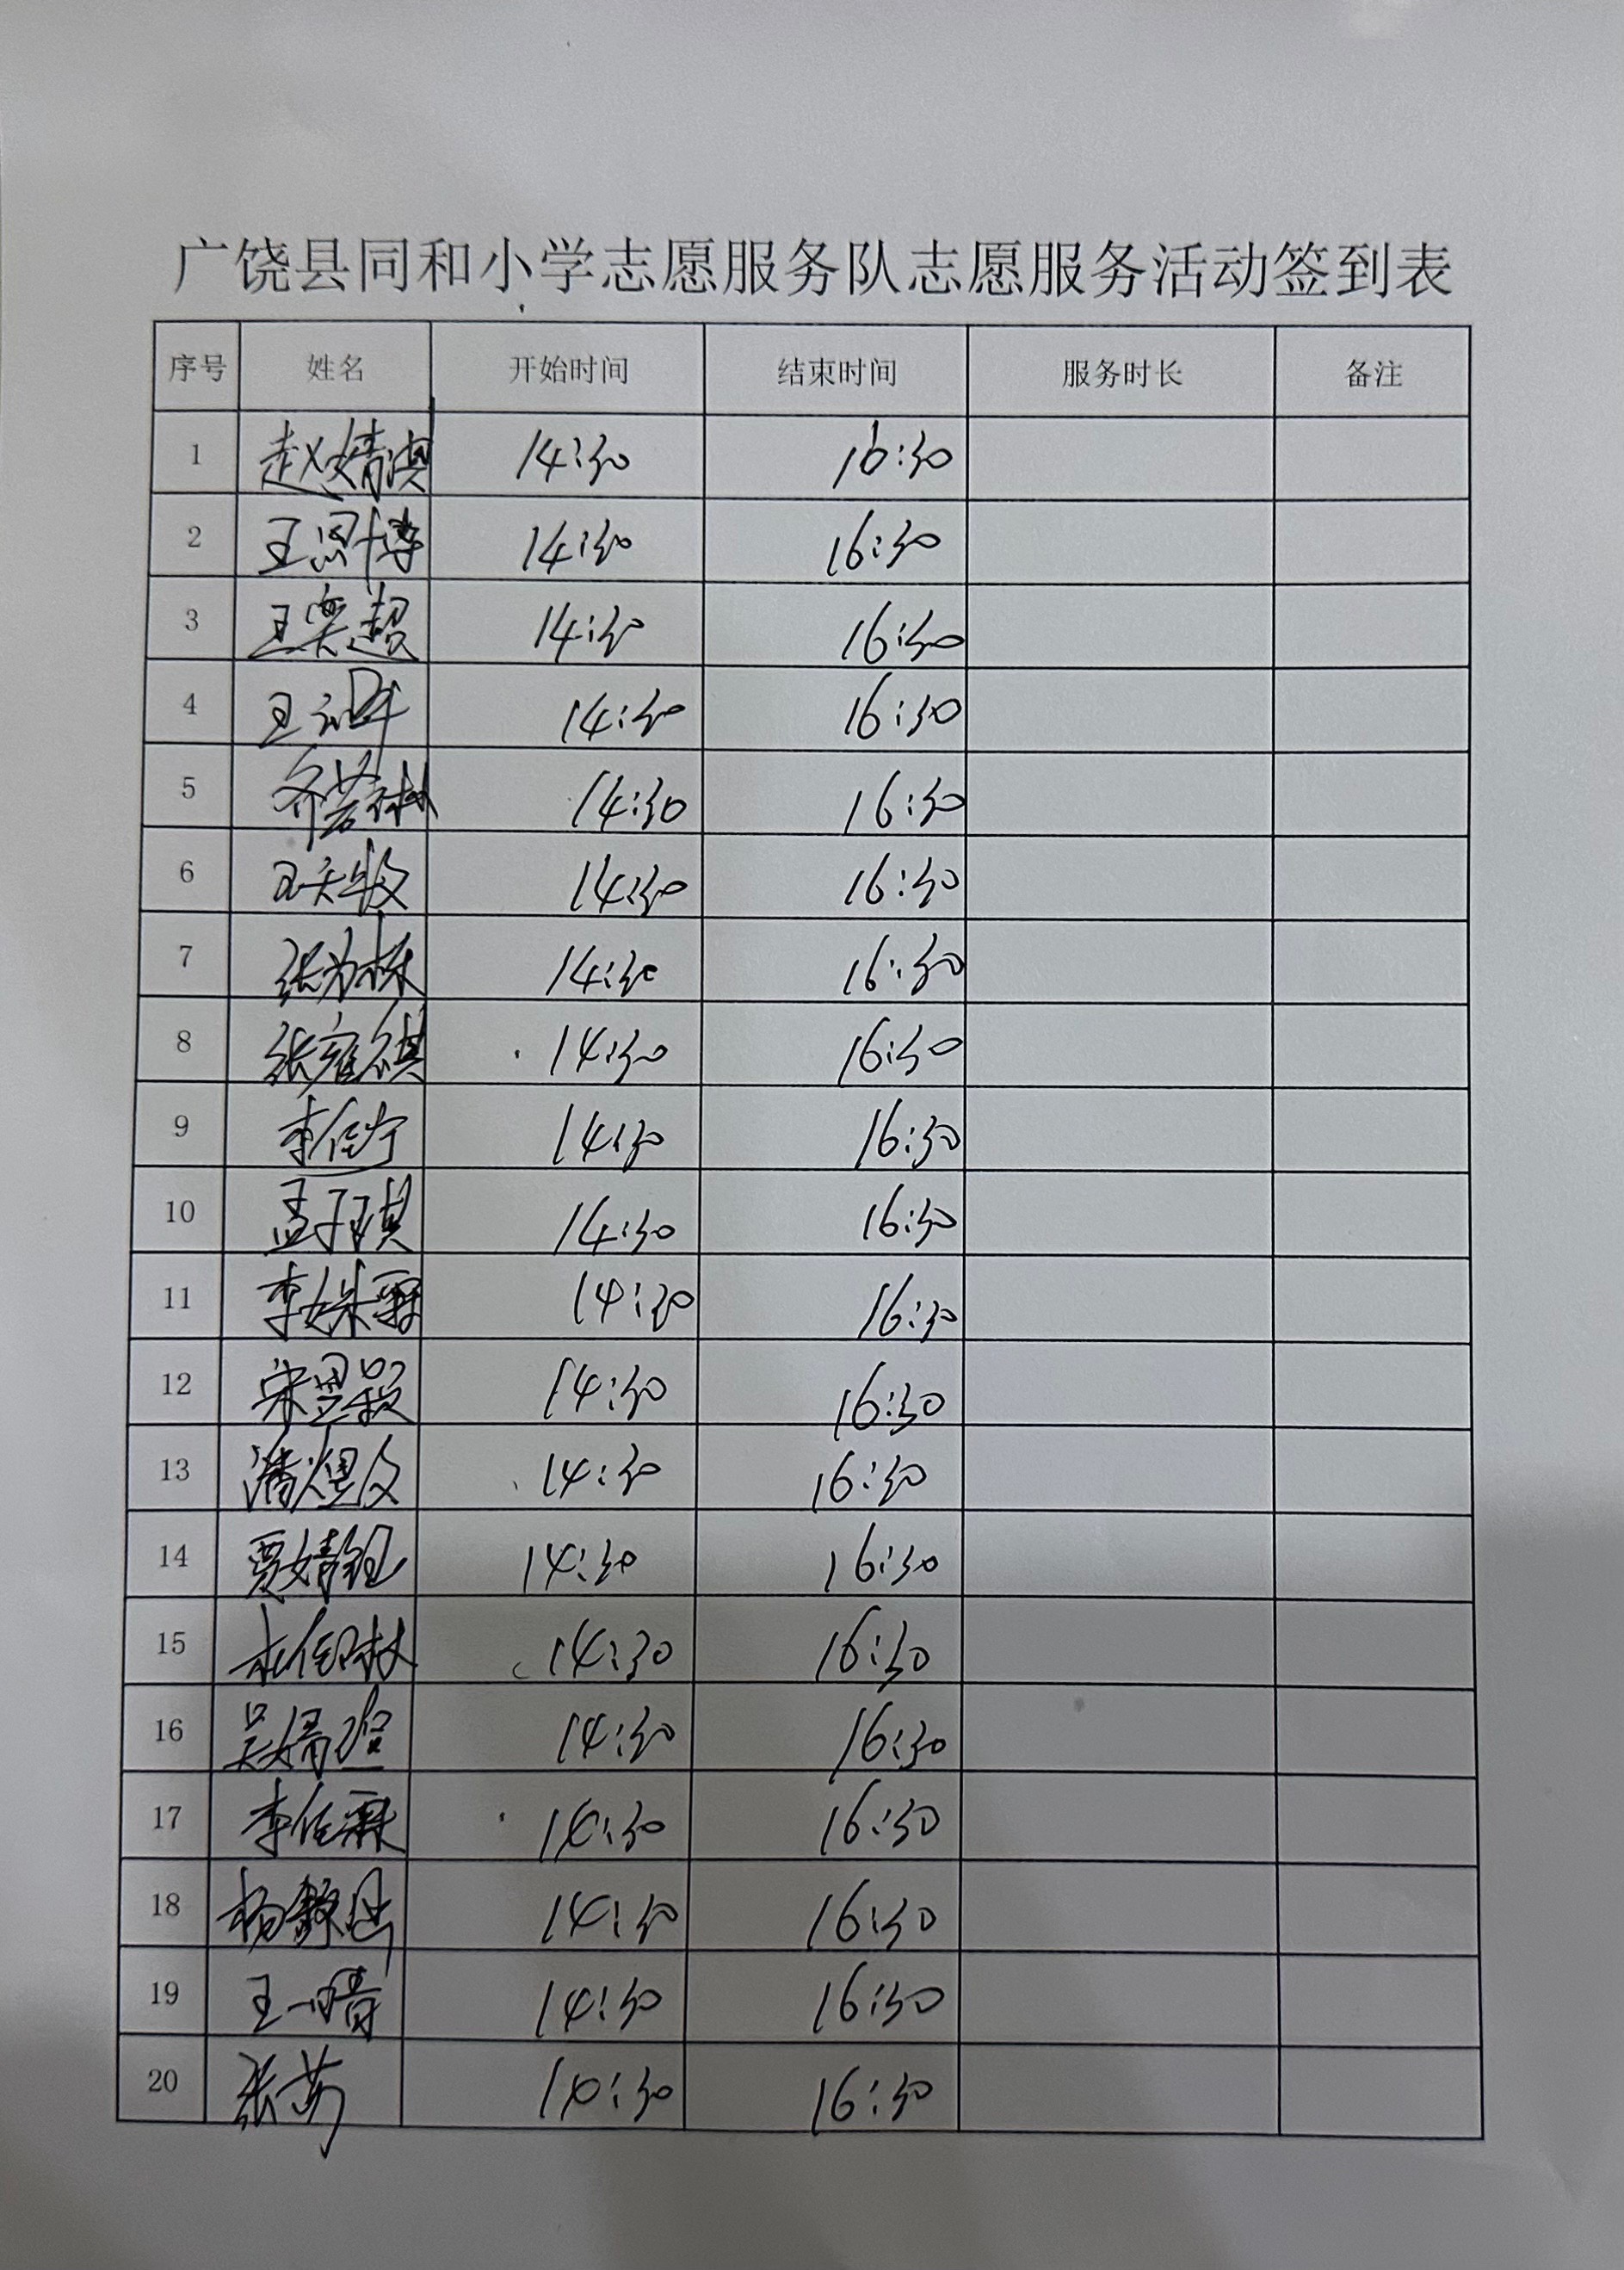 广饶县同和小学志愿服务队志愿服务活动签到表
序号 姓名 开始时间 结束时间 服务时长 备注
1 赵婧淇 14:30 16:30
2 王思博 14:30 16:30
3 王奕超 14:30 16:30
4 王 14:30 16:30
5 齐若彬 14:30 16:30
6 王天牧 14:30 16:30
7 张为栋 14:30 16:30
8 张雍祺 14:30 16:30
9 李佳宁 14:30 16:30
10 孟子琪 14:30 16:30
11 李姝霖 14:30 16:30
12 宋昱颖 14:30 16:30
13 潘煜文 14:30 16:30
14 贾婧钰 14:30 16:30
15 14:30 16:30
16 吴婧瑄 14:30 16:30
17 李佳霖 14:30 16:30
18 杨 14:30 16:30
19 王一晴 14:30 16:30
20 张苒 14:30 16:30